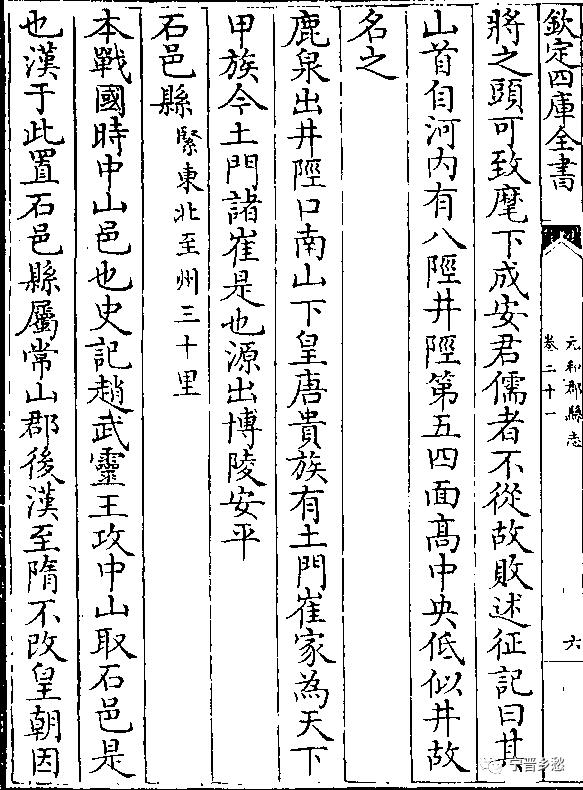 欽定四庫全書
元和郡縣志
卷二十一
六
將之頭可致麾下成安君儒者不從故敗述征記曰其
山首自河内有八陘井陘第五四面髙中央低似井故
名之
鹿泉出井陘口南山下皇唐貴族有土門崔家為天下
甲族今土門諸崔是也源出博陵安平
石邑縣緊東北至州三十里
本戰國時中山邑也史記趙武靈王攻中山取石邑是
也漢于此置石邑縣屬常山郡後漢至隋不改皇朝因
宁晋乡愁